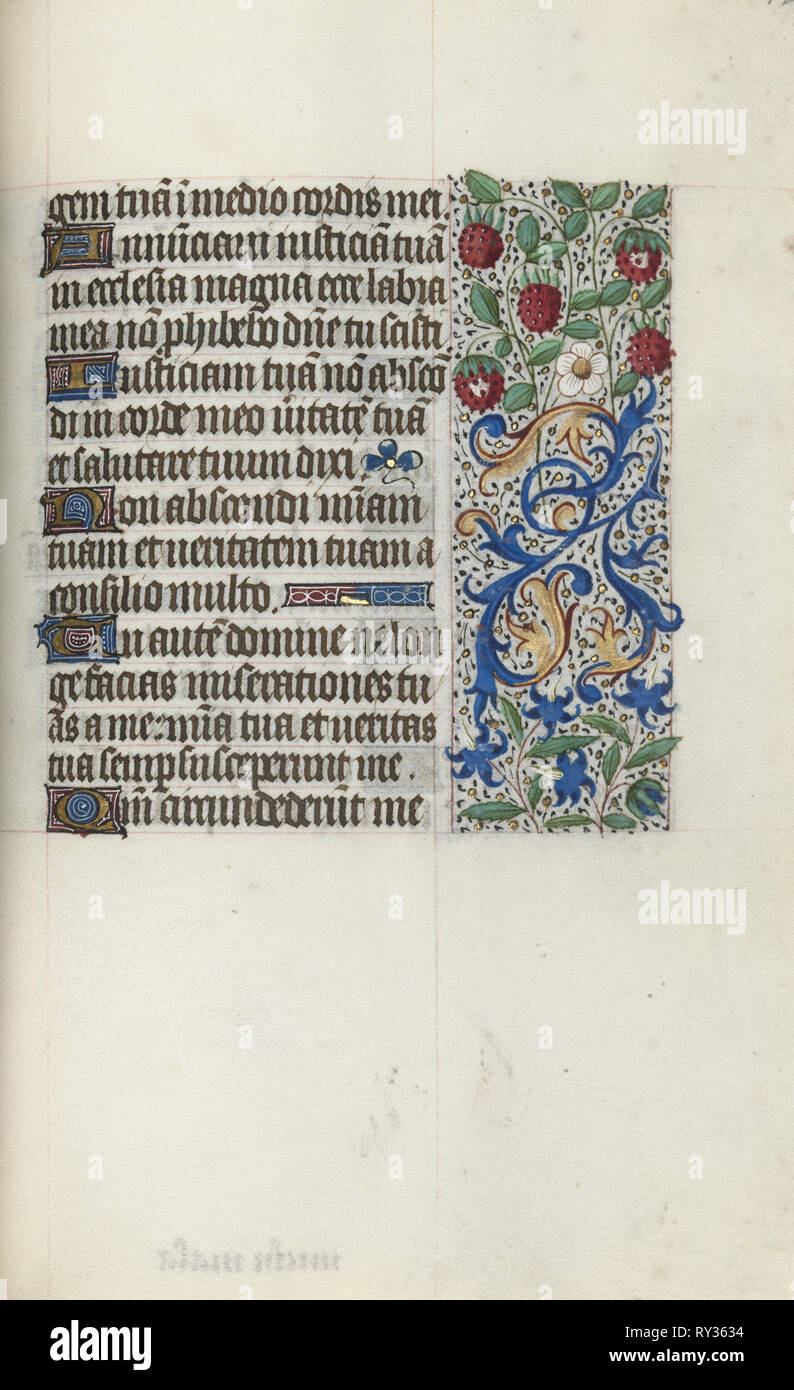 gem tuã ĩ medio cordis mei.
Annũciavi iusticiã tuã
in ecclesia magna ecce labia
mea nõ phibebo dñe tu scisti
Iusticiam tuã nõ abscõ
di in corde meo ṽitatẽ tuã
et salutare tuum dixi.
Non abscondi mĩam
tuam et veritatem tuam a
consilio multo.
Tu autẽ domine ne lon
ge facias miserationes tu
as a me: mĩa tua et veritas
tua semp susceperunt me.
Qm̃ circundederũt me
alamy
Image ID: RY3634
www.alamy.com